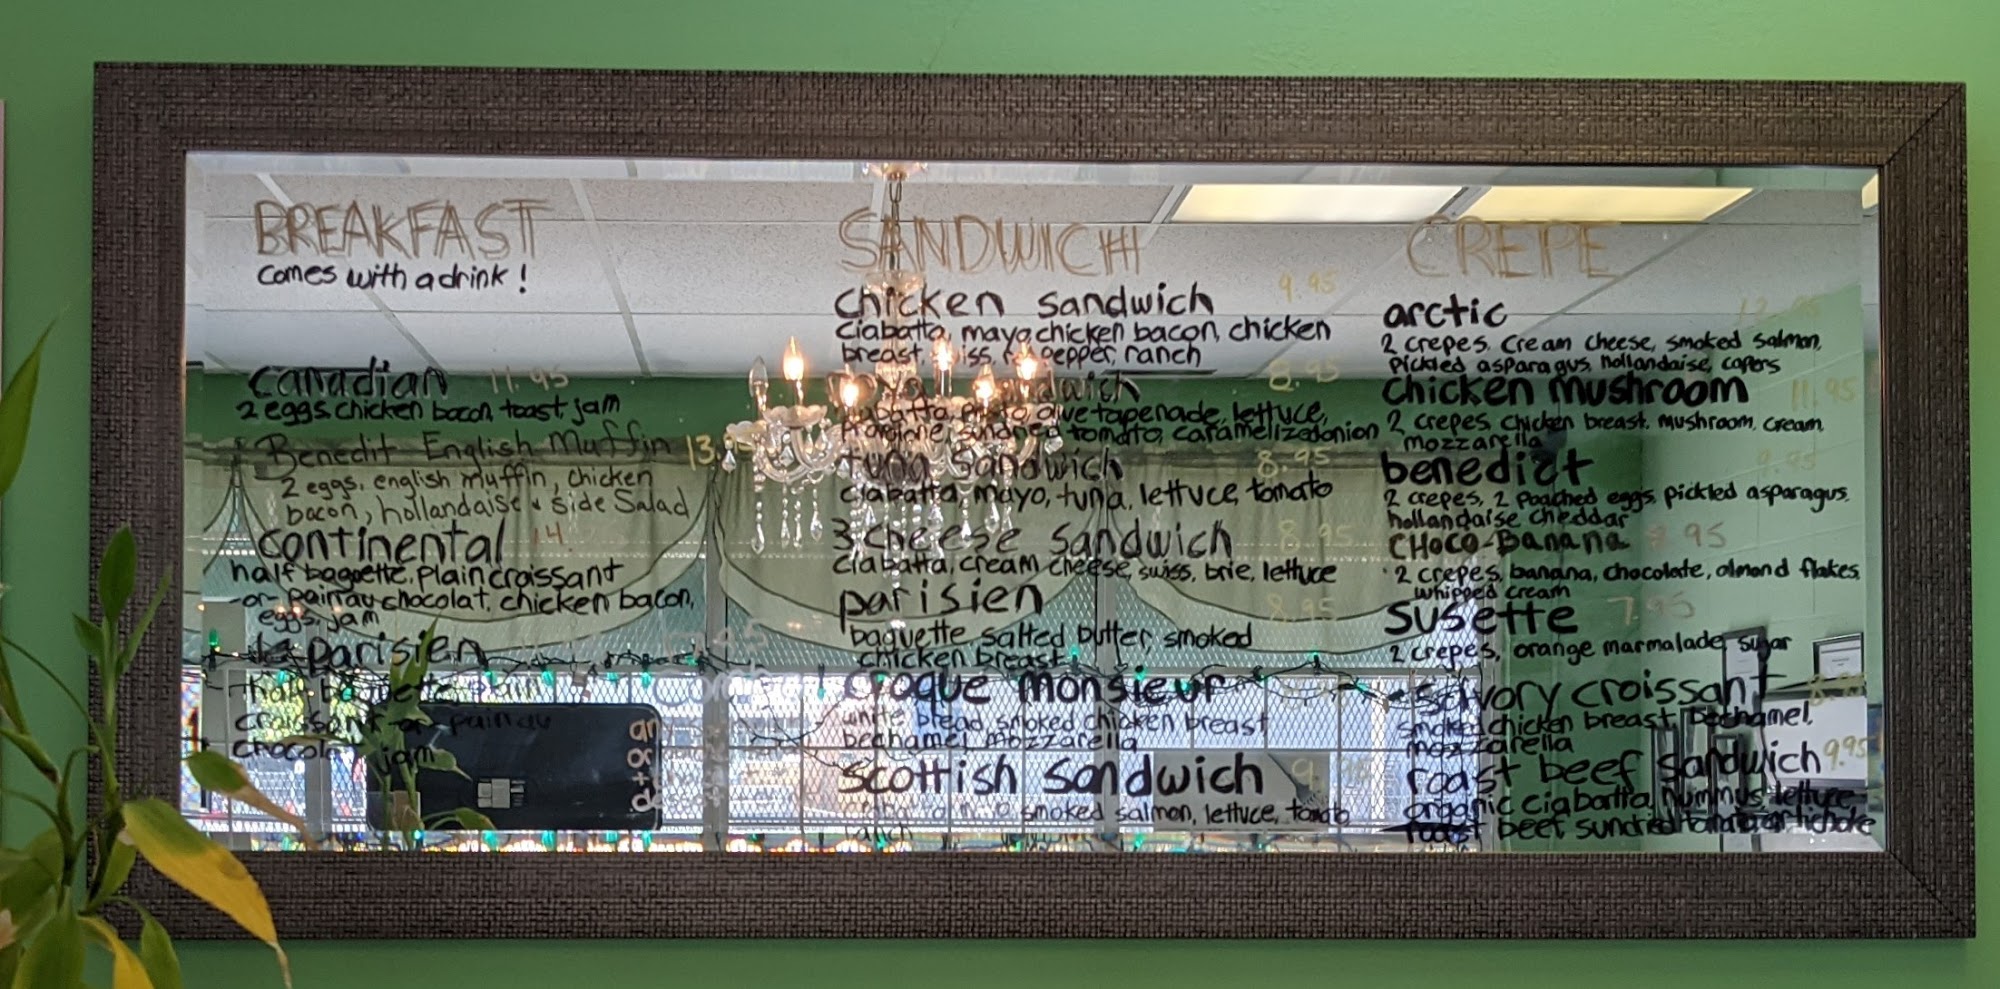 BREAKFAST
comes with a drink!
canadian 11.95
2 eggs, chicken bacon, toast, jam
Benedit English Muffin 13.
2 eggs, english muffin, chicken
bacon, hollandaise & side Salad
continental 14.
half baguette, plain croissant
-or- pain au chocolat, chicken bacon,
eggs, jam
le parisien
half baguette plain
croissant or pain au
chocolat, jam
SANDWICH
chicken sandwich 9.95
ciabatta, mayo, chicken bacon, chicken
breast, pepper, ranch
sandwich 8.95
olive tapenade, lettuce,
sundried tomato, caramelized onion
tuna sandwich 8.95
ciabatta, mayo, tuna, lettuce, tomato
3 cheese sandwich 8.95
ciabatta, cream cheese, swiss, brie, lettuce
parisien 8.95
baguette salted butter, smoked
chicken breast
croque monsieur
white bread, smoked chicken breast
bechamel, mozzarella
scottish sandwich
smoked salmon, lettuce, tomato
ranch
CREPE
arctic 12.95
2 crepes, cream cheese, smoked salmon,
pickled asparagus, hollandaise, capers
chicken mushroom 11.95
2 crepes, chicken breast, mushroom, cream
mozzarella
benedict 9.95
2 crepes, 2 poached eggs, pickled asparagus,
hollandaise cheddar
CHOCO-BANANA
2 crepes, banana, chocolate, almond flakes
whipped cream
susette 7.95
2 crepes, orange marmalade, sugar
savory croissant
smoked chicken breast, bechamel,
mozzarella
roast beef sandwich 9.95
organic ciabatta, hummus, lettuce,
roast beef, sundried tomato, artichoke